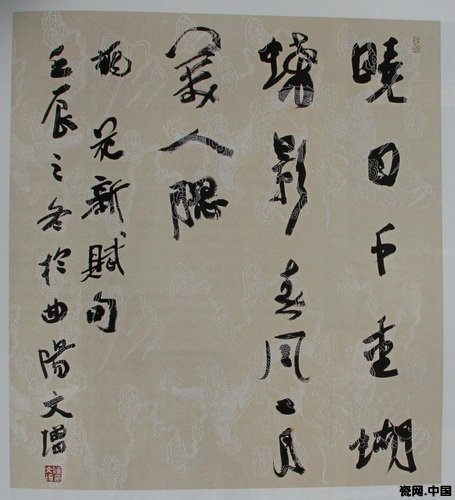 曉日千重蝴
蝶影春風二月
美人腮
桃花新賦句
壬辰之冬於曲陽文增
瓷网.中国